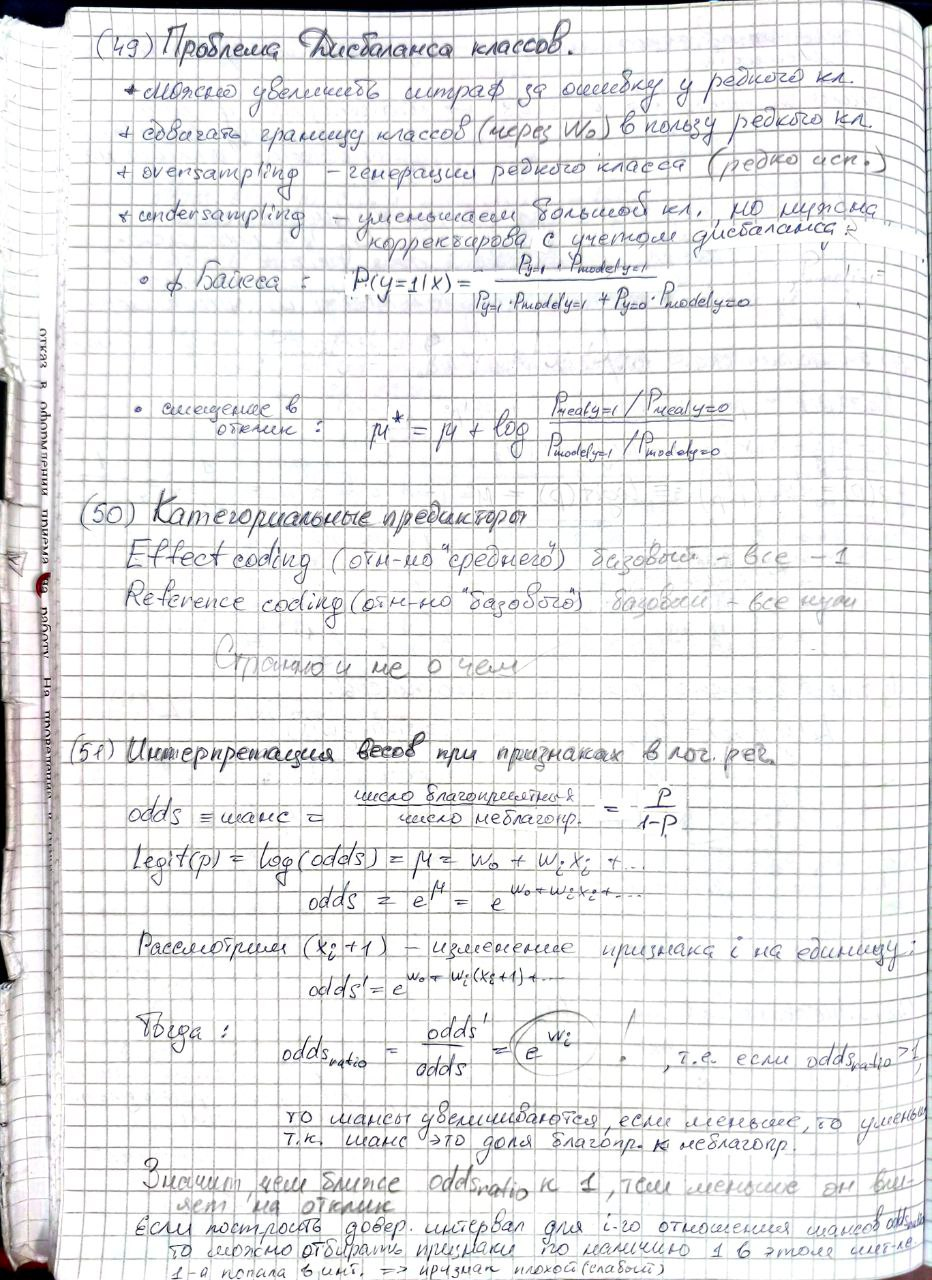 (49) Проблема Дисбаланса классов.
+ можно увеличить штраф за ошибку у редкого кл.
+ сдвигать границу классов (через W₀) в пользу редкого кл.
+ oversampling – генерация редкого класса (редко исп.)
+ undersampling – уменьшаем большой кл., но нужна
корректирова с учетом дисбаланса:
• ф Байеса : P(y=1|x) = Py=1 · Pmodely=1 / Py=1 · Pmodely=1 + Py=0 · Pmodely=0
• смещение в
отклик : μ* = μ + log (Prealy=1 / Prealy=0) / (Pmodely=1 / Pmodely=0)
(50) Категориальные предикторы
Effect coding (отн-но "среднего") базовый – все – 1
Reference coding (отн-но "базового") базовый – все нули
Странно и не о чем
(51) Интерпретация весов при признаках в лог. рег.
odds ≡ шанс = число благоприятных / число неблагопр. = P / 1-P
Legit(p) = log(odds) = μ = w₀ + wᵢxᵢ + ...
odds = e^μ = e^(w₀+wᵢxᵢ+...)
Рассмотрим (xᵢ+1) – изменение признака i на единицу:
odds' = e^(w₀+wᵢ(xᵢ+1)+...)
Тогда : odds ratio = odds' / odds = e^wᵢ ! , т.е. если odds ratio >1,
то шансы увеличиваются, если меньше, то уменьш
т.к. шанс это доля благопр. к неблагопр.
Значит, чем ближе odds ratio к 1, тем меньше он вли-
яет на отклик
Если построить довер. интервал для i-го отношения шансов odds ratio
то можно отбирать признаки по наличию 1 в этом инт-ле
1-а попала в инт. => признак плохой (слабый)
отказ в оформлении приема на работу. На